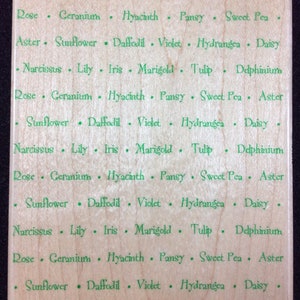 Rose • Geranium • Hyacinth • Pansy • Sweet Pea •
Aster • Sunflower • Daffodil • Violet • Hydrangea • Daisy
• Narcissus • Lily • Iris • Marigold • Tulip • Delphinium
Rose • Geranium • Hyacinth • Pansy • Sweet Pea • Aster
• Sunflower • Daffodil • Violet • Hydrangea • Daisy •
Narcissus • Lily • Iris • Marigold • Tulip • Delphinium
Rose • Geranium • Hyacinth • Pansy • Sweet Pea • Aster
• Sunflower • Daffodil • Violet • Hydrangea • Daisy •
Narcissus • Lily • Iris • Marigold • Tulip • Delphinium
Rose • Geranium • Hyacinth • Pansy • Sweet Pea • Aster
• Sunflower • Daffodil • Violet • Hydrangea • Daisy •